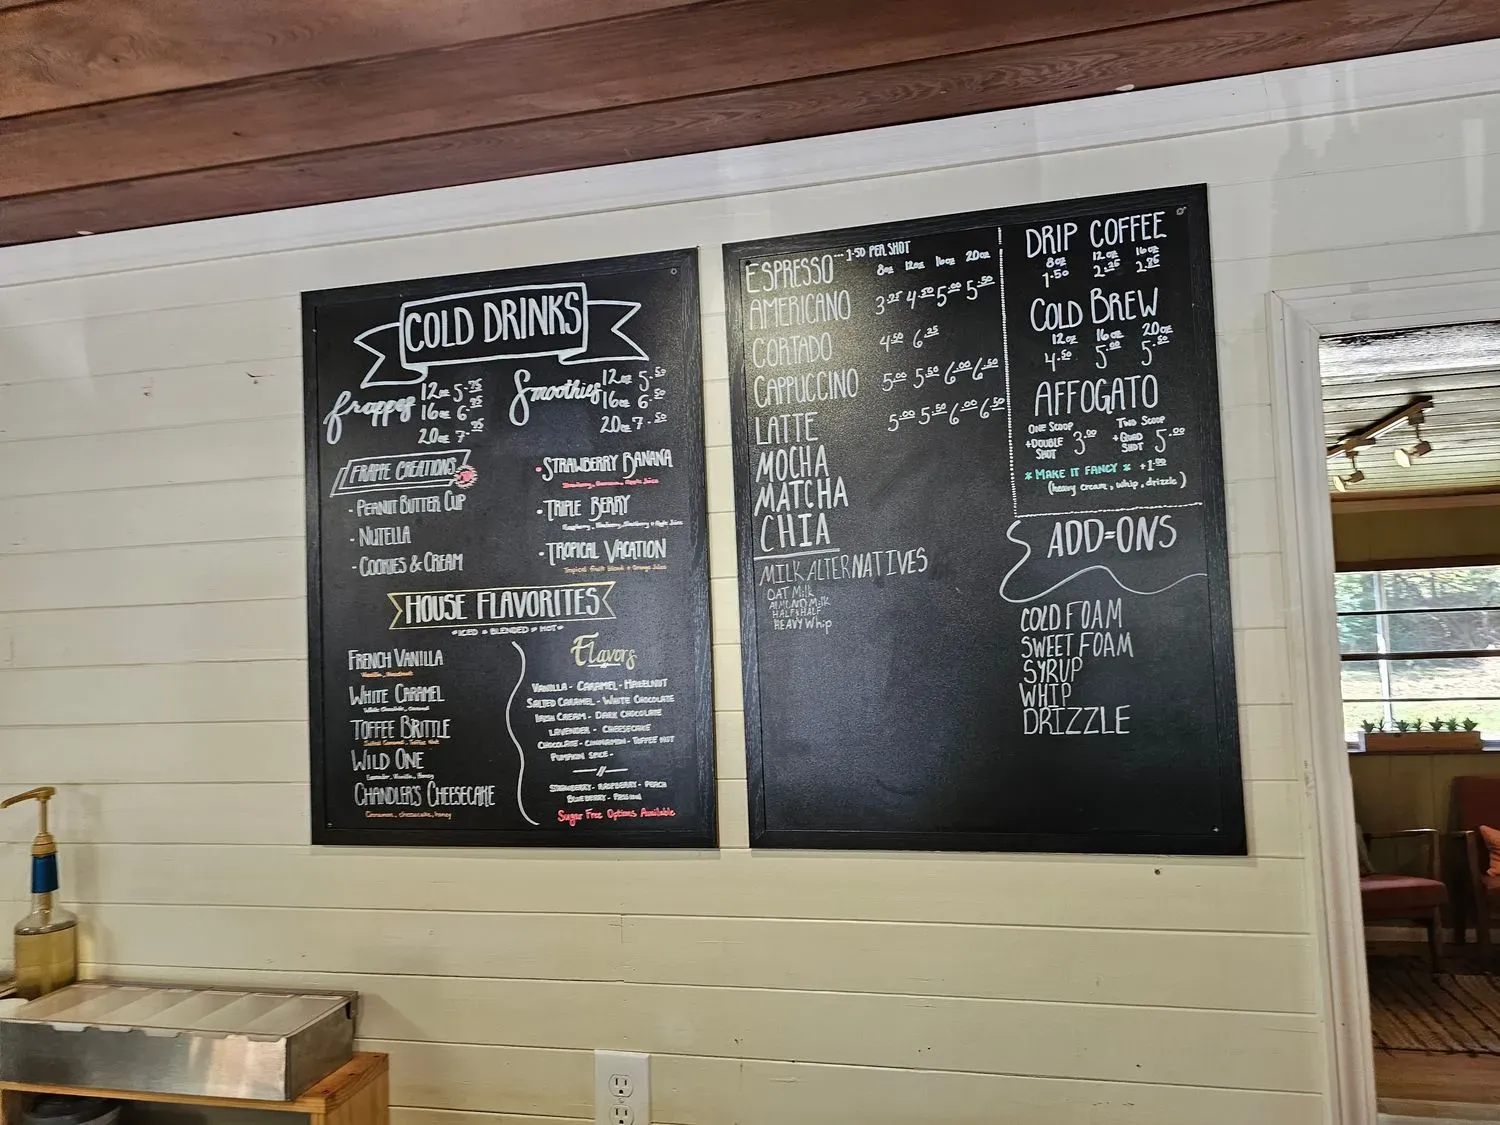 COLD DRINKS
frappes 12oz 5.75
16oz 6.75
20oz 7.75
Smoothies 12oz 5.50
16oz 6.50
20oz 7.50
FRAPPE CREATIONS
- PEANUT BUTTER CUP
- NUTELLA
- COOKIES & CREAM
• STRAWBERRY BANANA
Strawberry, Banana, Apple Juice
• TRIPLE BERRY
Raspberry, Blueberry, Blackberry + Apple Juice
• TROPICAL VACATION
Tropical fruit blend + Orange Juice
HOUSE FLAVORITES
*ICED * BLENDED * HOT*
FRENCH VANILLA
Vanilla, Hazelnut
WHITE CARAMEL
White Chocolate, Caramel
TOFFEE BRITTLE
Salted Caramel, Toffee Nut
WILD ONE
Lavender, Vanilla, Honey
CHANDLER'S CHEESECAKE
Cinnamon, cheesecake, honey
Flavors
VANILLA - CARAMEL - HAZELNUT
SALTED CARAMEL - WHITE CHOCOLATE
IRISH CREAM - DARK CHOCOLATE
LAVENDER - CHEESECAKE
CHOCOLATE - CINNAMON - TOFFEE NUT
PUMPKIN SPICE -
STRAWBERRY - RASPBERRY - PEACH
BLUEBERRY - PASSION
Sugar Free Options Available
ESPRESSO --- 1.50 PER SHOT
8oz 12oz 16oz 20oz
AMERICANO 3.25 4.50 5.00 5.50
CORTADO 4.50 6.25
CAPPUCCINO 5.00 5.50 6.00 6.50
LATTE 5.00 5.50 6.00 6.50
MOCHA
MATCHA
CHIA
MILK ALTERNATIVES
OAT Milk
ALMOND Milk
HALF & HALF
HEAVY Whip
DRIP COFFEE
8oz 12oz 16oz
1.50 2.25 2.75
COLD BREW
12oz 16oz 20oz
4.50 5.00 5.50
AFFOGATO
ONE SCOOP +DOUBLE SHOT 3.00
TWO SCOOP +QUAD SHOT 5.00
* MAKE IT FANCY * +1.00
(heavy cream, whip, drizzle)
ADD=ONS
COLD FOAM
SWEET FOAM
SYRUP
WHIP
DRIZZLE